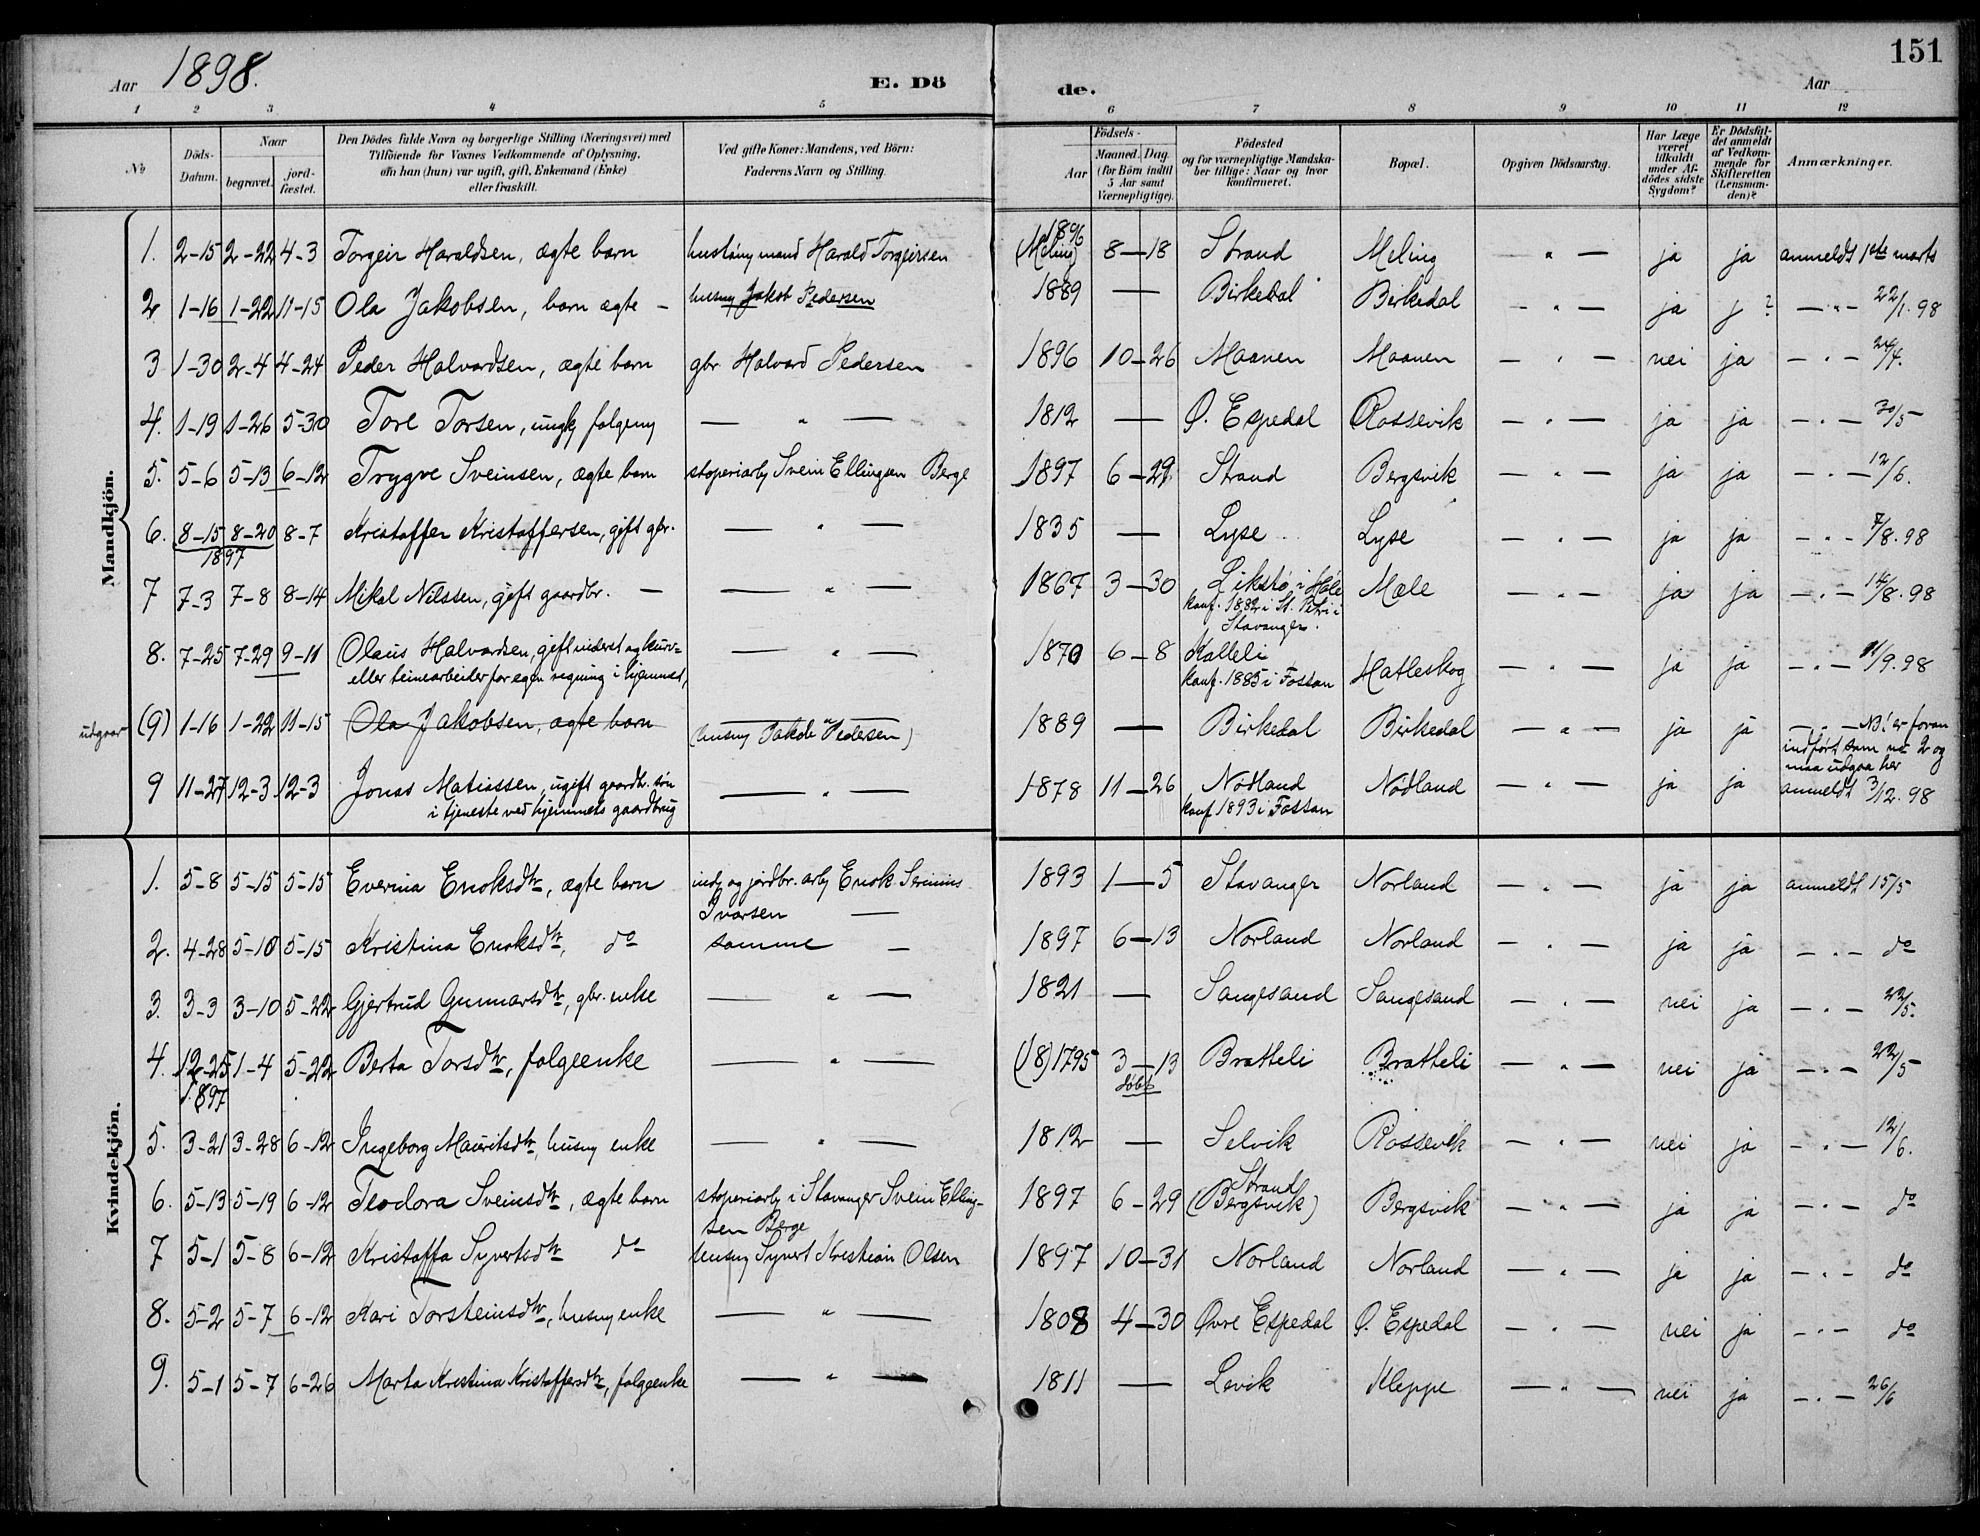 Aar 1898. E. Dö de. Aar 151
1 2 3 4 5 6 7 8 9 10 11 12
No Döds-Datum. Naar begravet. jordfæstet. Den Dödes fulde Navn og borgerlige Stilling (Næringsvei) med Tilföiende for Voxnes Vedkommende af Oplysning, om han (hun) var ugift, gift, Enkemand (Enke) eller fraskilt. Ved gifte Koner: Mandens, ved Börn: Faderens Navn og Stilling. Födsels- Aar Maaned. Dag. (for Börn indtil 5 Aar samt Værnepligtige). Födested og for værnepligtige Mandskaber tillige: Naar og hvor konfirmeret. Bopæl. Opgiven Dödsaarsag. Har Læge været tilkaldt under Afdödes sidste Sygdom? Er Dödsfaldet anmeldt af Vedkommende for Skifteretten (Lensmanden)? Anmærkninger.
Mandkjön.
1. 2-15 2-22 4-3 Torgeir Haraldsen, ægte barn Harald Torgeirsen 1896 (Meling) 8-18 Strand Meling — " — ja ja anmeldt 1ste marts
2 1-16 1-22 11-15 Ola Jakobsen, barn ægte — husmg Jakob Pedersen 1889 — Birkedal Birkedal — " — ja j ? — " — 22/1.98
3 1-30 2-4 4-24 Peder Halvardsen, ægte barn gbr Halvard Pedersen 1896 10-26 Maanen Maanen — " — nei ja — " — 24/4.
4. 1-19 1-26 5-30 Tore Torsen, ungk, folgemg — " — 1812 — Ø. Espedal Rossevik — " — ja ja — " — 30/5
5. 5-6 5-13 6-12 Trygve Sveinsen, ægte barn støperiarb Svein Ellingsen Berge 1897 6-29 Strand Bergsvik — " — ja ja — " — 12/6.
6. 8-15 8-20 8-7 Kristoffer Kristoffersen, gift gbr. — " — 1835 — Lyse Lyse — " — ja ja — " — 7/8.98
1897
7 7-3 7-8 8-14 Mikal Nilssen, gift gaardbr. — — " — 1867 3-30 i Høle Mæle — " — ja ja — " — 14/8.98
konf. 1882 i St. Petri i Stavanger.
8. 7-25 7-29 9-11 Olaus Halvardsen, gift inderst og kurv= — " — 1870 6-8 Kalleli Hatleskog — " — ja ja — " — 11/9.98
eller teinearbeider for egen regning i hjemmet, konf. 1885 i Fossan
udgaar (9) 1-16 1-22 11-15 Ola Jakobsen, ægte barn — " — (husmg Jakob Pedersen) 1889 — Birkedal Birkedal — " — ja ja — " — NB! er foran
indført som no 2 og
maa udgaa her
9 11-27 12-3 12-3 Jonas Matiassen, ugift gaardbr. søn — " — 1878 11-26 Nødland Nødland — " — ja ja anmeldt 3/12.98
i tjeneste ved hjemmets gaardbrug konf 1893 i Fossan
Kvindekjön.
1. 5-8 5-15 5-15 Everina Enoksdtr, ægte barn inds og jordbr. arb Enok Severinius 1893 1-5 Stavanger Norland — " — ja ja anmeldt 15/5
Ivarsen —
2. 4-28 5-10 5-15 Kristina Enoksdtr, do samme — 1897 6-13 Norland Norland — " — ja ja — " — do
3. 3-3 3-10 5-22 Gjertrud Gunnarsdtr, gbr. enke — " — 1821 — Sangesand Sangesand — " — nei ja — " — 22/5.
4. 12-25 1-4 5-22 Berta Torsdtr, folgeenke — " — (18)1795 3-13 Bratteli Bratteli — " — nei ja — " — 22/5
1897 døbt
5. 3-21 3-28 6-12 Ingeborg Mauritsdtr, husmg enke — " — 1812 — Selvik Rossevik — " — nei ja — " — 12/6.
6. 5-13 5-19 6-12 Teodora Sveinsdtr, ægte barn støperiarb i Stavanger Svein Elling- 1897 6-29 Strand (Bergsvik) Bergsvik — " — ja ja — " — do
sen Berge
7 5-1 5-8 6-12 Kristoffa Syvertsdtr do husmg Syvert Kristian Olsen 1897 10-31 Norland Norland — " — ja ja — " — do
8. 5-2 5-7 6-12 Kari Torsteinsdtr, husmg enke — " — 1808 4-30 Øvre Espedal Ø. Espedal — " — nei ja — " — do
9. 5-1 5-7 6-26 Marta Kristina Kristoffersdtr, folgeenke — " — 1811 — Levik Kleppe — " — nei ja — " — 26/6